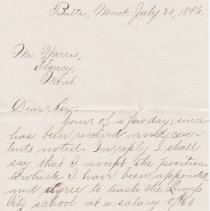 Butte, Mont July 30, 1896.
Mr. Harris,
Clancy,
Mont.
Dear Sir:
Yours of a few days since
has been rec'd and con-
tents noted. In reply I shall
say that I accept the position
to which I have been appointed
and agree to teach the Lump
City school at a salary of 60